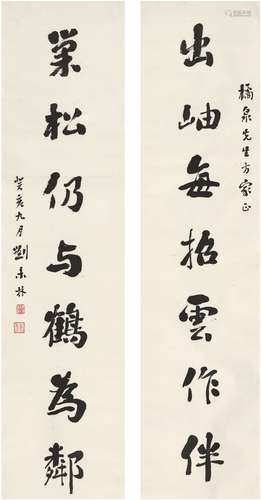 橘泉先生方家正
出岫每招雲作伴
巢松仍与鶴為鄰
癸亥九月劉未林